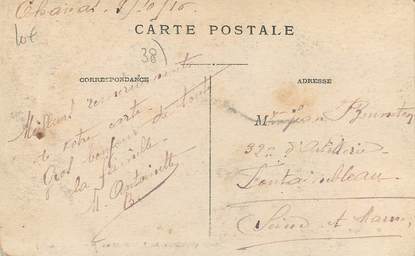 Chanas
lot
38)
CARTE POSTALE
CORRESPONDANCE
ADRESSE
Millant remerciements
de votre carte.
Gros bonjour de toute
la famille
M. Antoinette
Jean
32e d'Artillerie
Fontainebleau
Seine et Marne